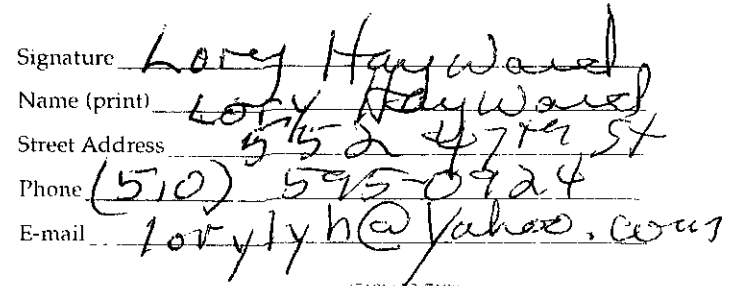 Signature Lory Hayward
Name (print) Lory Hayward
Street Address 552 47th St
Phone (510) 595-0924
E-mail lorylyh@yahoo.com